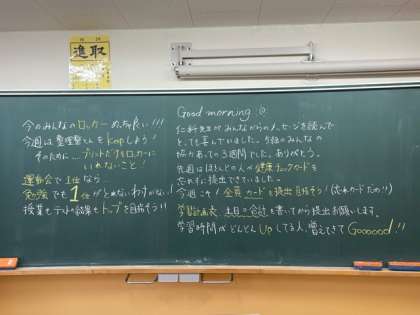 進取
今のみんなのロッカー めっちゃ良い!!!
今週は整理整とんを Keepしよう!
そのために… プリントだけをロッカーに
いれないこと!
運動会で1位なら
勉強でも1位がとれないわけがない!
授業もテストの結果もトップを目指そう!!
Good morning
仁科先生がみんなからのメッセージを読んで
とても喜んでいました。5組のみんなの
協力あっての3週間でした。ありがとう。
先週はほとんどの人が健康チェックカードを
忘れずに提出できていました。
今週こそ!全員カードを提出目指そう!
学習計画表、土日の合計も書いてから提出お願いします。
学習時間が どんどん Upしてる人、増えてきて Goooood!!